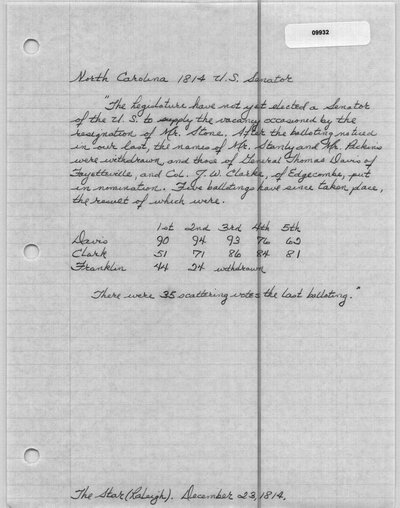 09932
North Carolina 1814 U.S. Senator
"The Legislature have not yet elected a Senator
of the U.S. to supply the vacancy occasioned by the
resignation of Mr. Stone. After the balloting noticed
in our last, the names of Mr. Stanly and Mr. Pickens
were withdrawn and those of General Thomas Davis of
Fayetteville, and Col. J. W. Clarke, of Edgecombe, put
in nomination. Five ballotings have since taken place,
the result of which were.
1st 2nd 3rd 4th 5th
Davis 90 94 93 76 62
Clark 51 71 86 84 81
Franklin 44 24 withdrawn
There were 35 scattering votes the last balloting."
The Star (Raleigh). December 23, 1814.